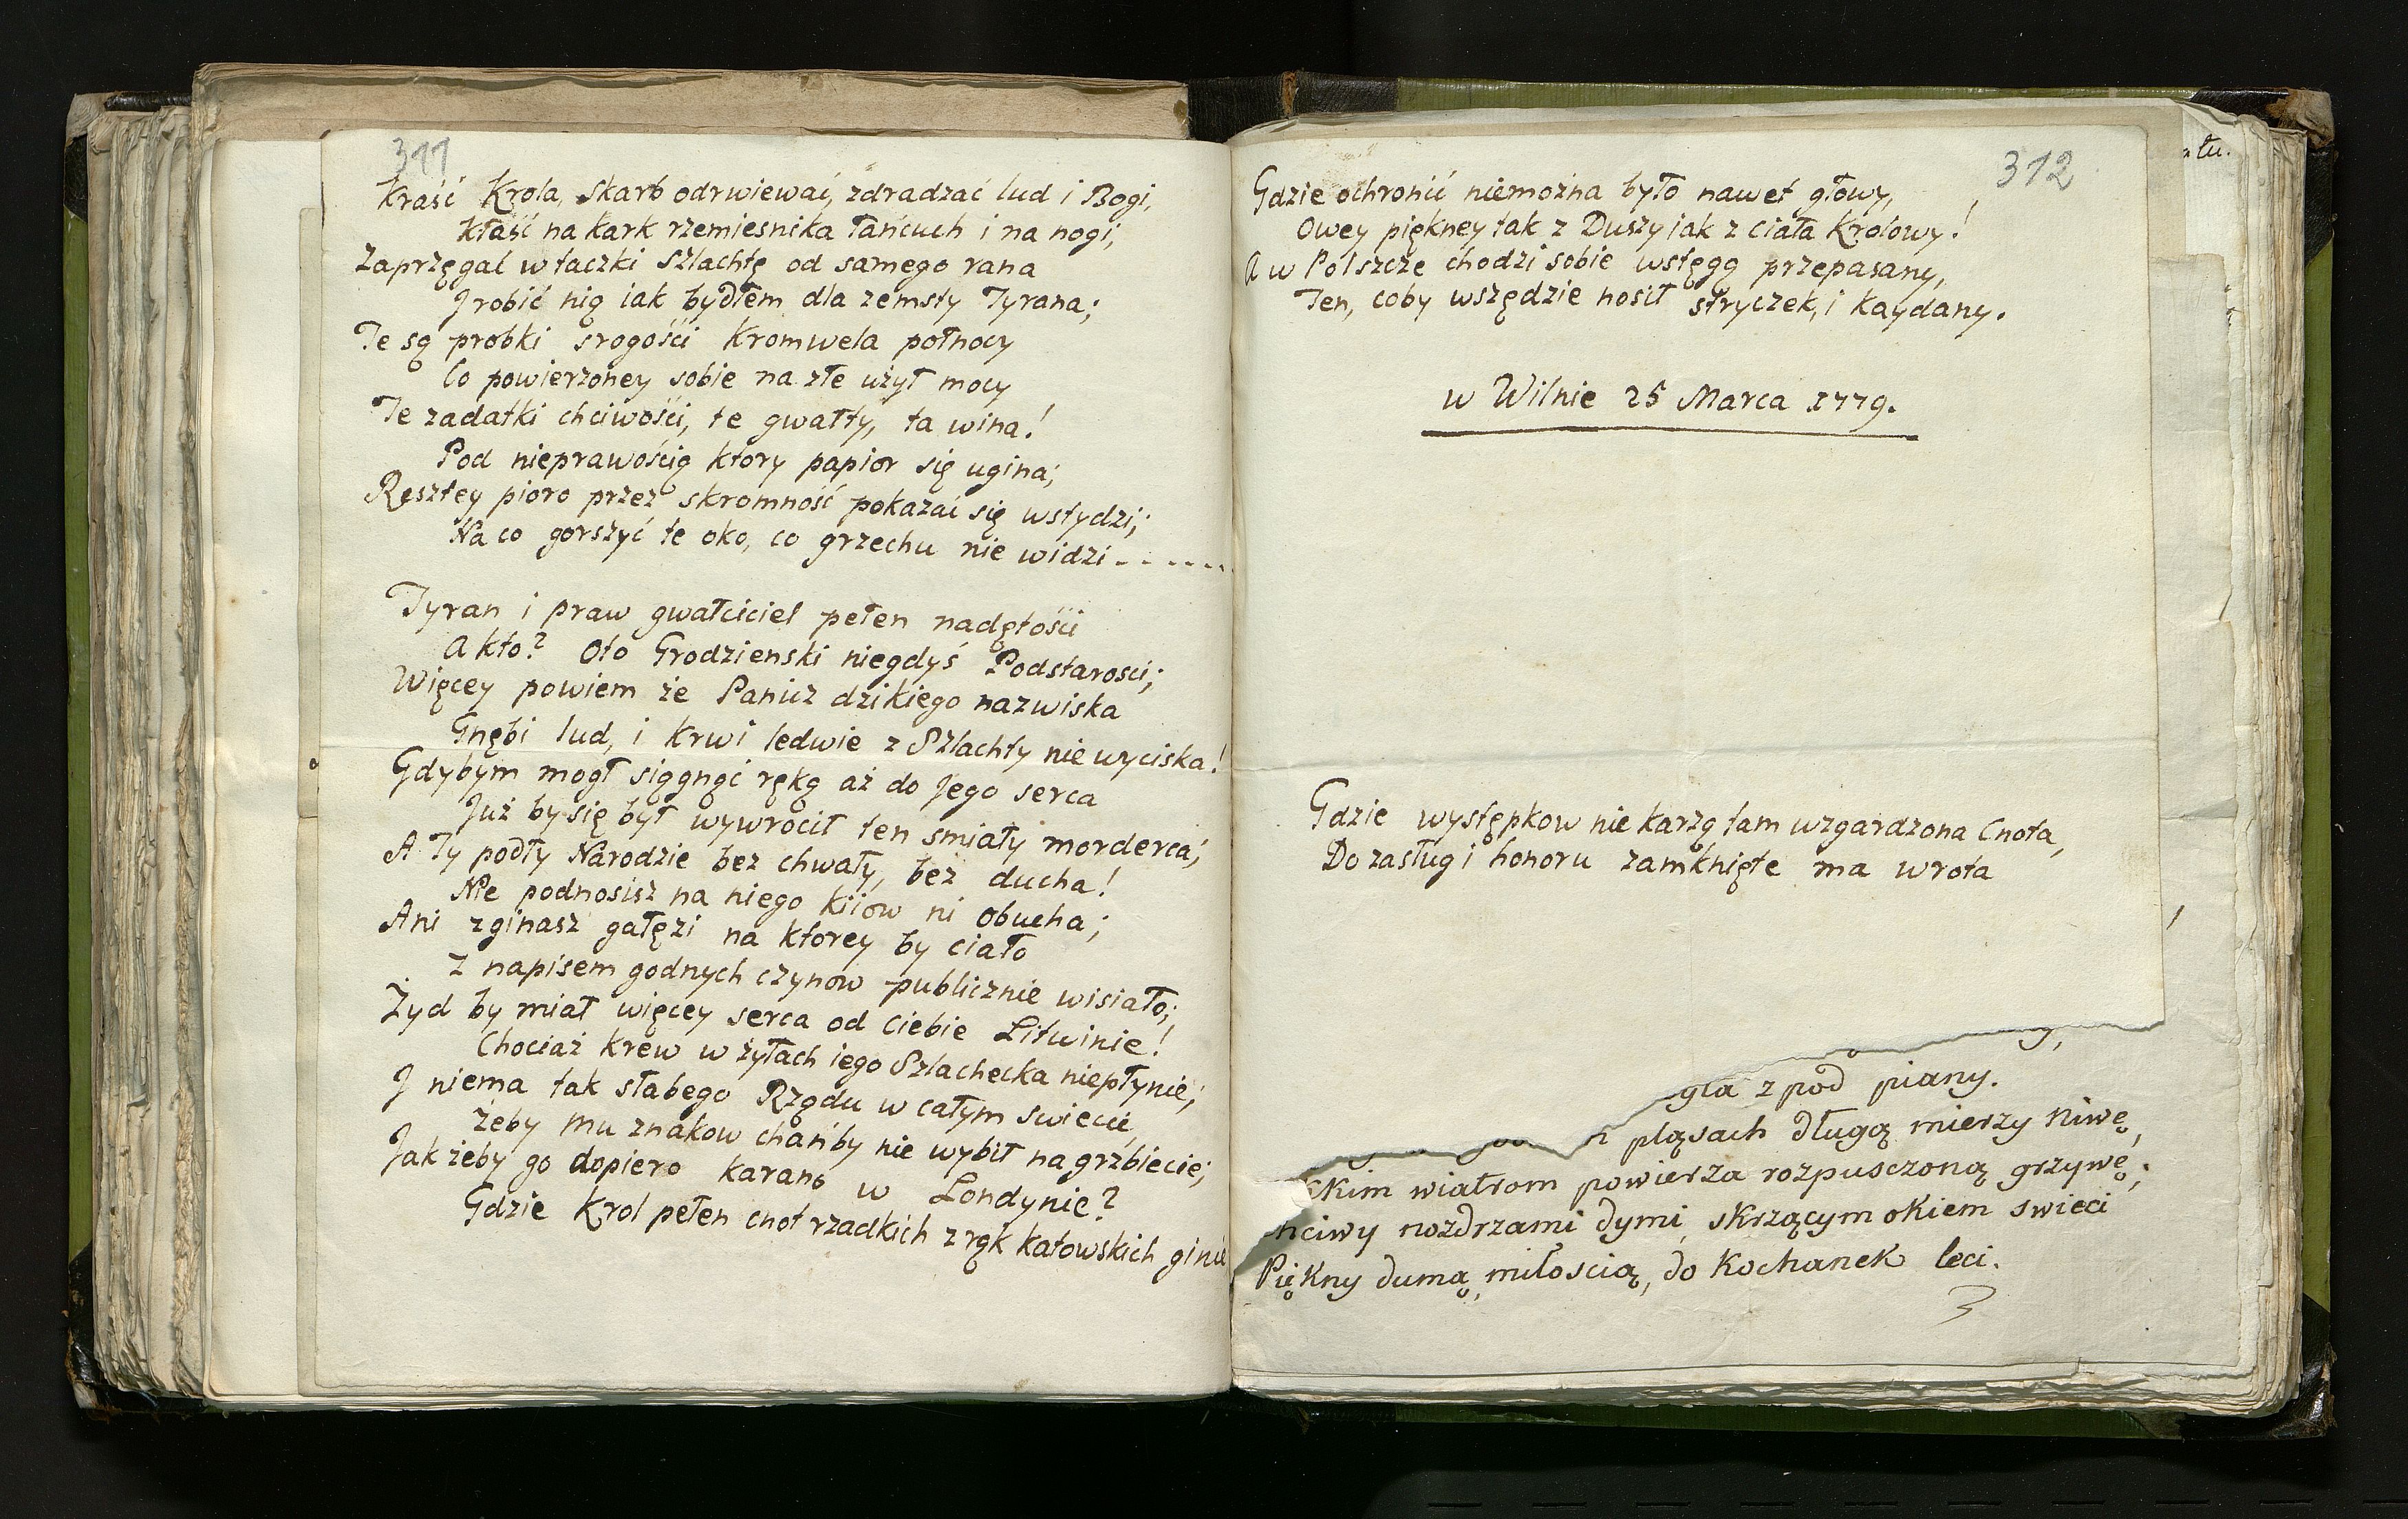 311
Kraść Krola, Skarb odrwiewać, zdradzać lud i Bogi,
Kłaść na kark rzemiesnika łańcuch i na nogi;
Zaprzęgal w taczki Szlachtę od samego rana
J robić nią iak bydłem dla zemsty Tyrana;
Te są probki srogości Kromwela połnocy
Co powierzoney sobie na złe użył mocy
Te zadatki chciwości, te gwałty, ta wina!
Pod nieprawością ktory papior się ugina;
Reszłey pioro przez skromność pokazać się wstydzi;
Na co gorszyć te oko, co grzechu nie widzi - - - - - -
Tyran i praw gwałciciel pełen nadętości
A kto? Oto Grodzienski niegdyś Podstarosci;
Więcey powiem że Panicz dzikiego nazwiska
Gnębi lud, i krwi ledwie z Szlachty nie wyciska!
Gdybym mogł siągnąć ręką aż do Jego serca
Już by się był wywrocił ten smiały morderca;
A Ty podły Narodzie bez chwały, bez ducha!
Nie podnosisz na niego kiiow ni obucha;
Ani zginasz gałęzi na ktorey by ciało
Z napisem godnych czynow publicznie wisiało;
Żyd by miał więcey serca od Ciebie Litwinie!
Chociaż krew w żyłach iego Szlachecka niepłynie;
J niema tak słabego Rządu w całym swiecie,
żeby mu znakow chańby nie wybił na grzbiecie;
Jak żeby go dopiero karano w Londynie?
Gdzie Krol pełen cnot rzadkich z rąk katowskich ginie
312
ału.
Gdzie ochronić niemożna było nawet głowy,
Owey piękney tak z Duszy iak z ciała Krolowy!
A w Polszcze chodzi sobie wstęgą przepasany,
Ten, coby wszędzie nosił stryczek, i kaydany.
w Wilnie 25 Marca 1779.
Gdzie występkow nie karzą tam wzgardzona Cnota,
Do zasług i honoru zamknięte ma wrota
gla z pod piany.
pląsach długą mierzy niwę,
kim wiatrom powierza rozpusczoną grzywę;
hciwy nozdrzami dymi, skrzącym okiem swieci
Piękny dumą, miłoscią, do kochanek leci.
3